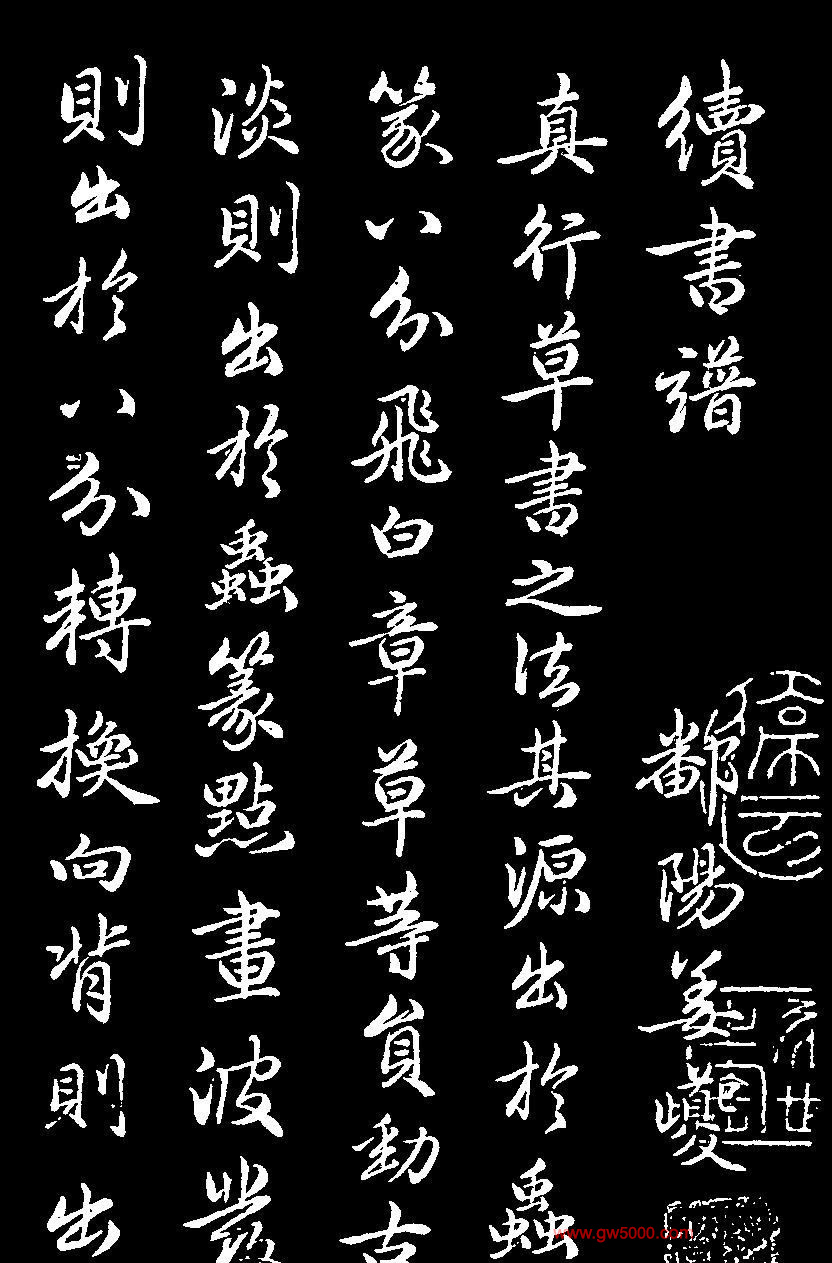 續書譜
鄱陽姜夔
真行草書之法其源出於蟲
篆八分飛白章草等員勁古
淡則出於蟲篆點畫波發
則出於八分轉換向背則出
www.gw5000.com